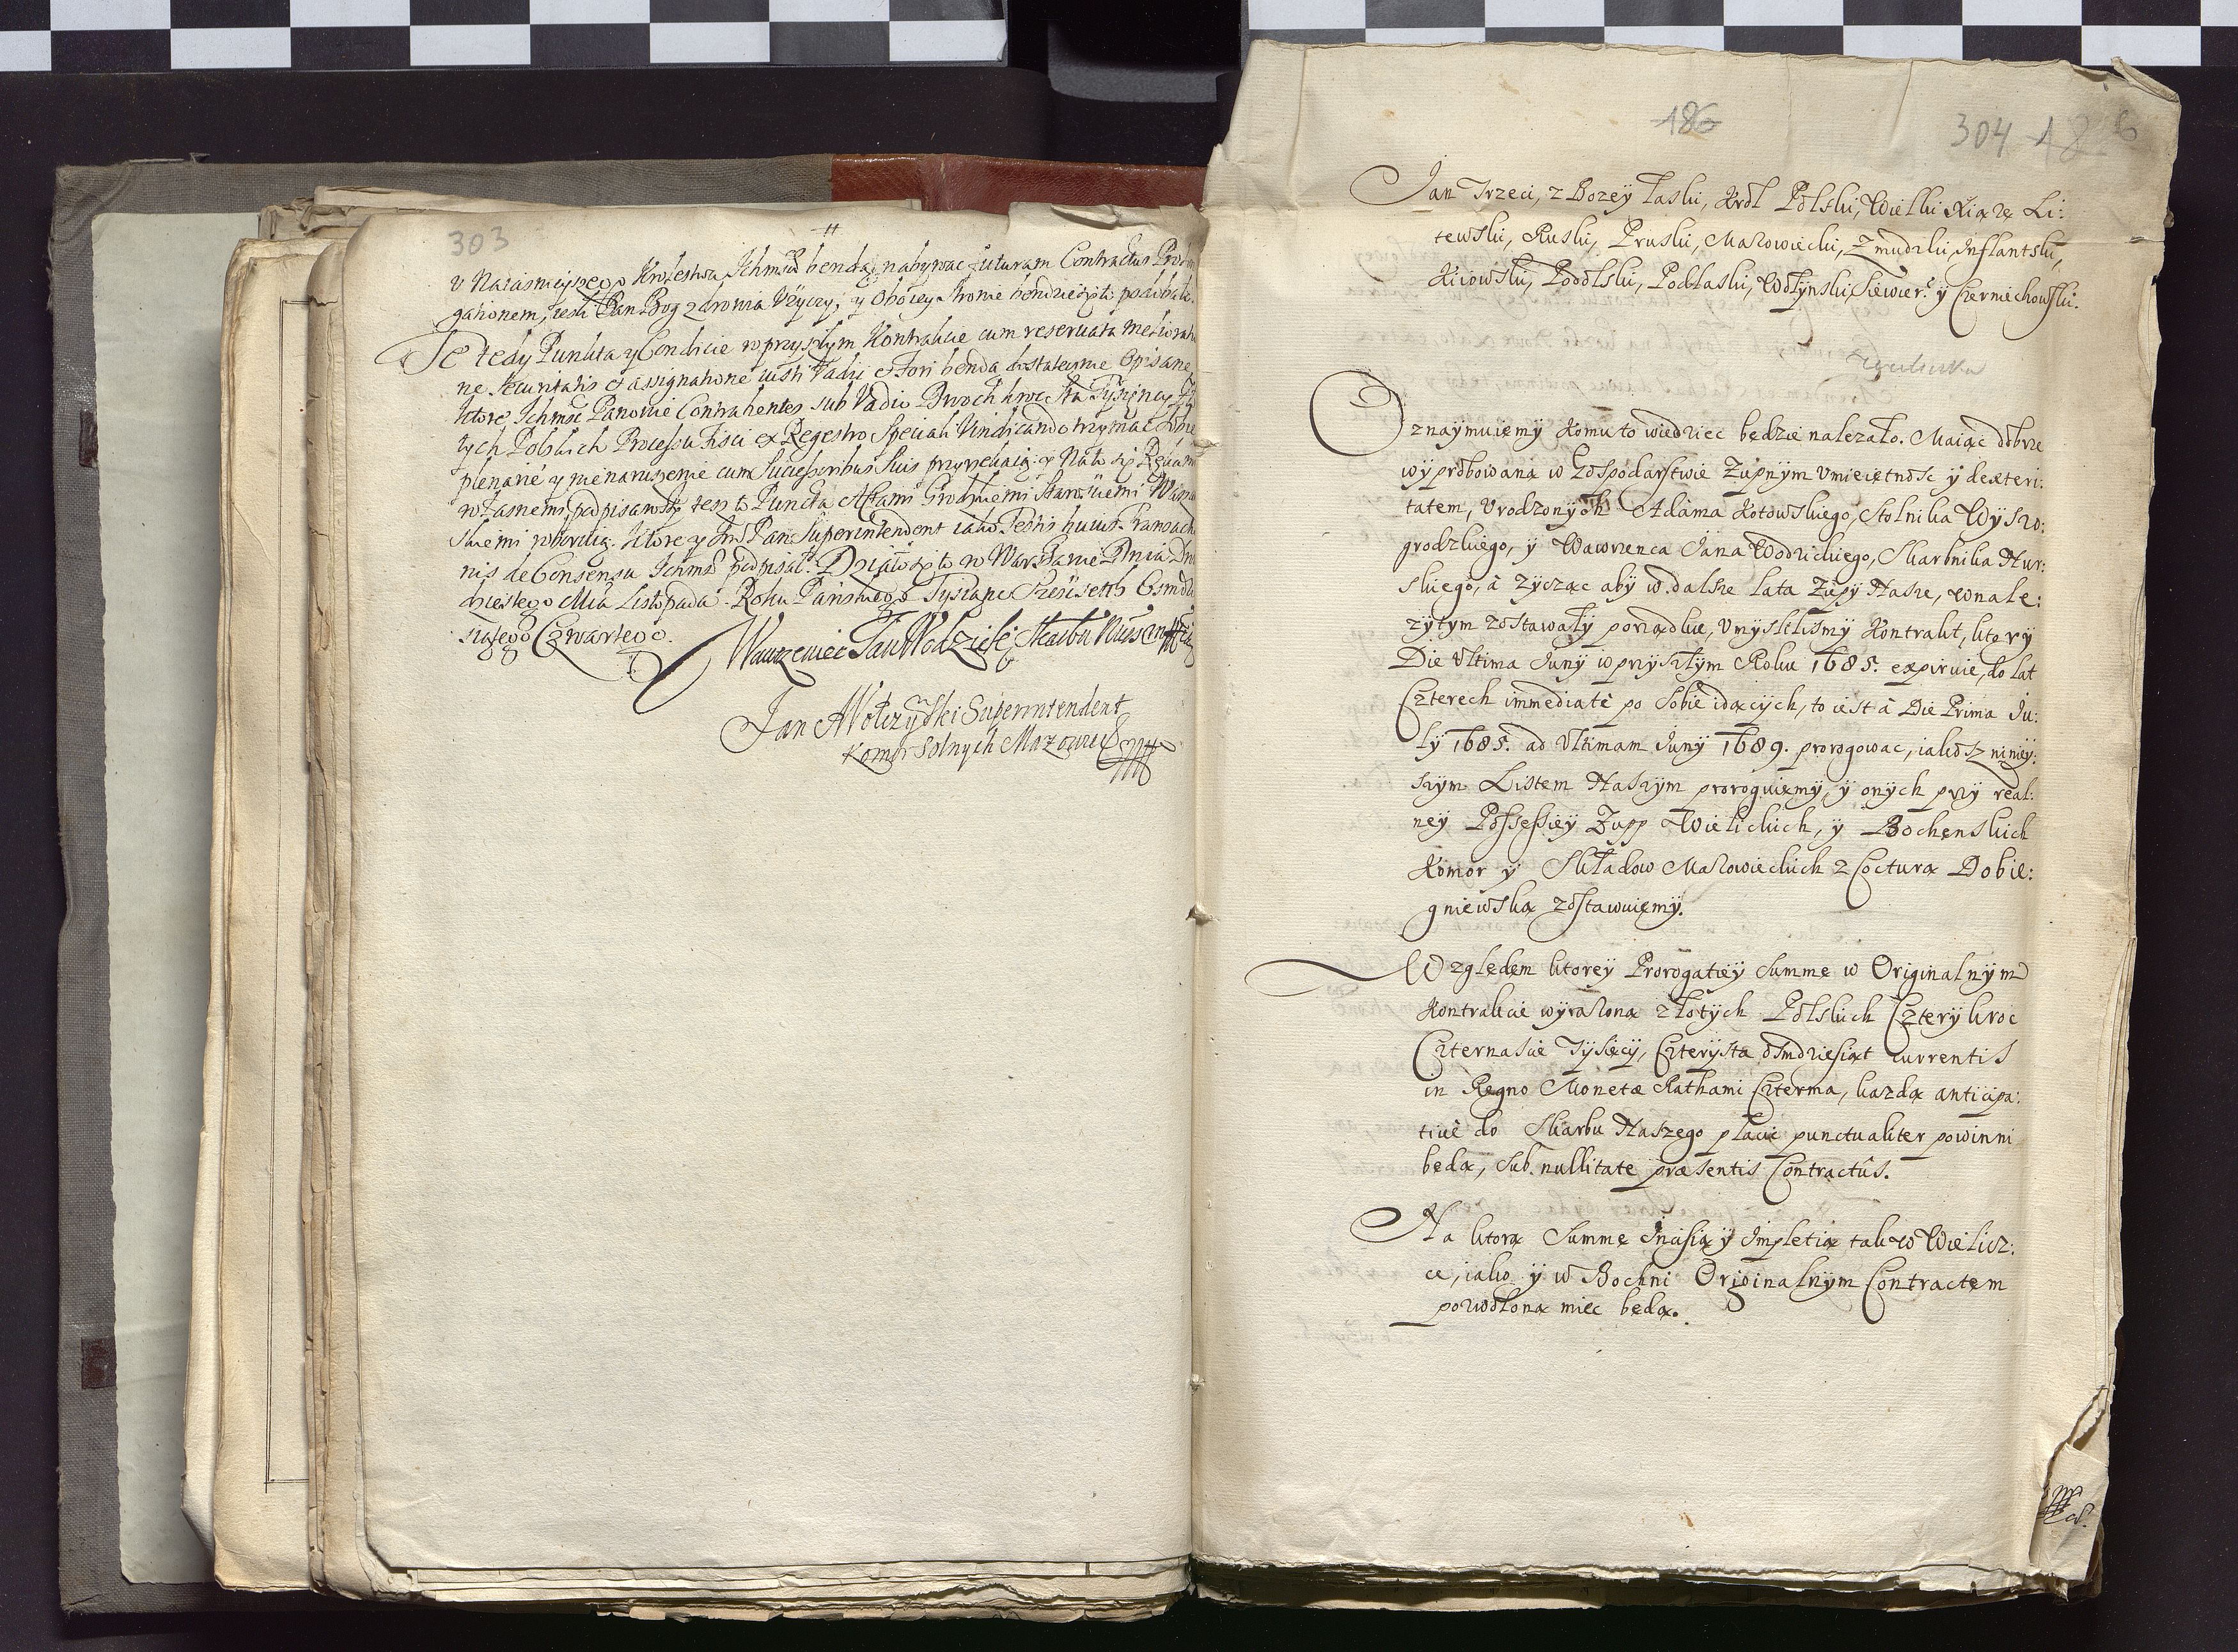 303
v Naiasnieyszego Krolestwa Ichmsciow benda nabywac futuram Contractus Proro
gationem, iesli Pan Bog zdrowia Użyczy, y Oboiey stronie bendzie się to podobało.
Te tedy Punkta y Condicie w przyszłym Kontrakcie cum reseruata melioratio
ne securitatis et assignatione iusti Vadii et Fori benda dostatecznie Opisane,
Ktore Ichmsc Panowie Contrahentes sub Vadio Dwoch kroc sta Tysięcy Zło
tych Polskich Processu Fisci ex Regestro Speciali Vindicando trzymac
plenarie y nienaruszenie cum Successoribus suis przyrzekaią y Na to się Rękami
własnemi podpisawszy tesz to Puncta Aktami Grodzkiemi Starosciemi Warsz
skiemi roborują. Ktore y Jmsc Pan Superintendent iako Testis huius Transactio
nis de Consensu Ichmsc podpisał. Działo się to w Warszawie Dnia
dziestego Mca Listopada. Roku Panskiego Tysiącz Szescsetn Osmdzie
siątego Czwartego.
Wawrzeniec Jan Wodzicki Skarbn Nurs mp
Jan Wolczynski Superintendent
Komor Solnych Mazowieck mp
186
304 186
Jan Trzeci, z Bozey łaski, Krol Polski, Wielki Xiąże Li:
tewski, Ruski, Pruski, Mazowiecki, Zmudzki, Inflantski,
Kiiowski, Podolski, Podlaski, Wołynski, Siewier: y Czerniechowski.
Oznaymuiemy komu to wiedziec będzie nalezało. Maiąc dobrze
wyprobowaną w Gospodarstwie Zupnym vmieiętnosc y dexteri:
tatem, Vrodzonych Adama Kotowskiego, Stolnika Wyszo:
grodzkiego, y Wawrzenca Jana Wodzickiego, Skarbnika Nur:
skiego, â zycząc aby w dalsze lata Zupy Nasze, w nale:
zytym zostawały porządku, vmyslilismy Kontrakt, ktory
Die Vltima Juny w przyszłym Roku 1685. expiruie, do lat
Czterech immediatè po sobie idących, to iest â Die Prima Ju:
ly 1685. ad Vltimam Juny 1689. prorogowac, iakosz niniey:
szym Listem Naszym proroguiemy, y onych przy real:
ney Possessiey Zupp Wielickich, y Bochenskich
Komor y Składow Mazowieckich z Cocturą Dobie:
gniewską zostawuiemy.
Względem ktorey Prorogatiey summę w Originalnym
Kontrakcie wyrazoną złotych Polskich Cztery kroc
Czternascie Tysięcy, Czterysta Osmdziesiąt currentis
in Regno Monetæ Rathami Czterma, kazdą anticipa:
tiuè do Skarbu Naszego płacic punctualiter powinni
będą, sub nullitate præsentis Contractûs.
Na ktorą summę Incisią y Impletią tak w Wielicz:
ce, iako y w Bochni Originalnym Contractem
pozwoloną miec będą.